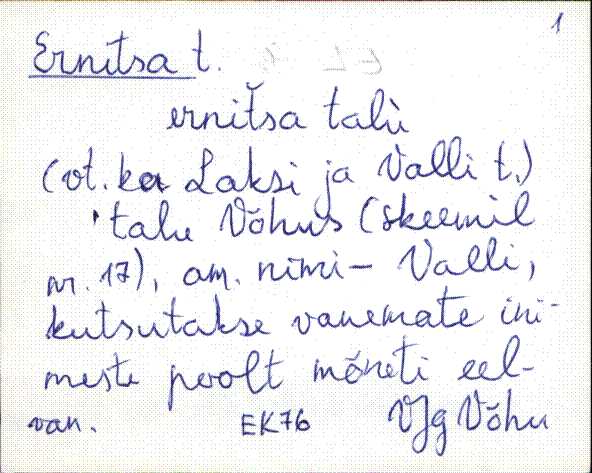 1
Ernitsa t.
ernit̆sa talù
(vt. ka Laksi ja Valli t.)
talu Võhus (skeemil
nr. 17), am. nimi - Valli,
kutsutakse vanemate ini-
meste poolt mõneti eel-
van. EK76 VJg Võhu